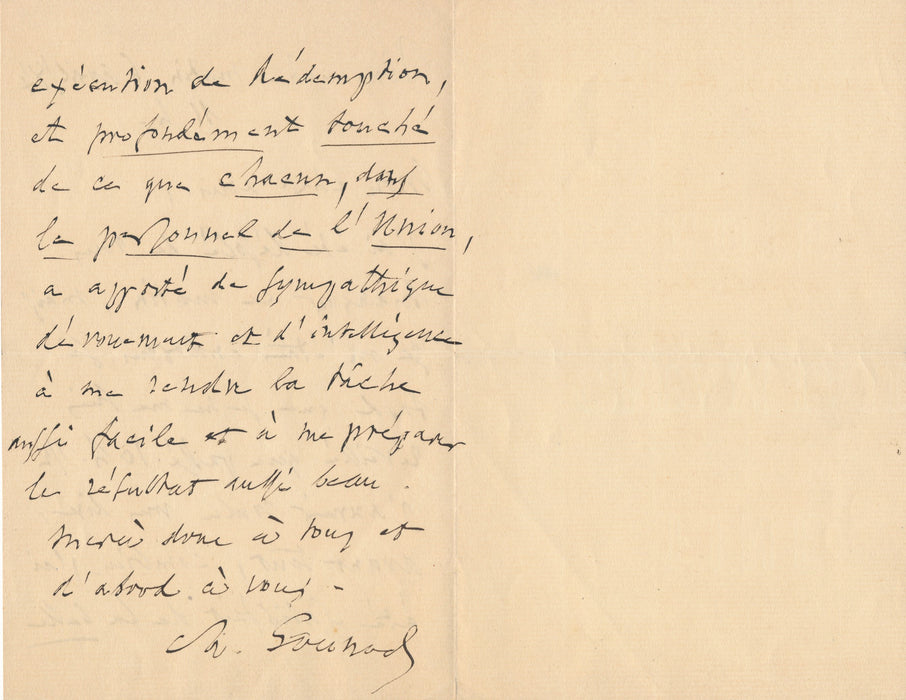 exécution de Rédemption,
et profondément touché
de ce que chacun, dans
le personnel de l'Union,
a apporté de sympathique
dévouement et d'intelligence
à me rendre la tâche
aussi facile et à me préparer
le résultat aussi beau.
Merci donc à tous et
d'abord à vous –
Ch. Gounod